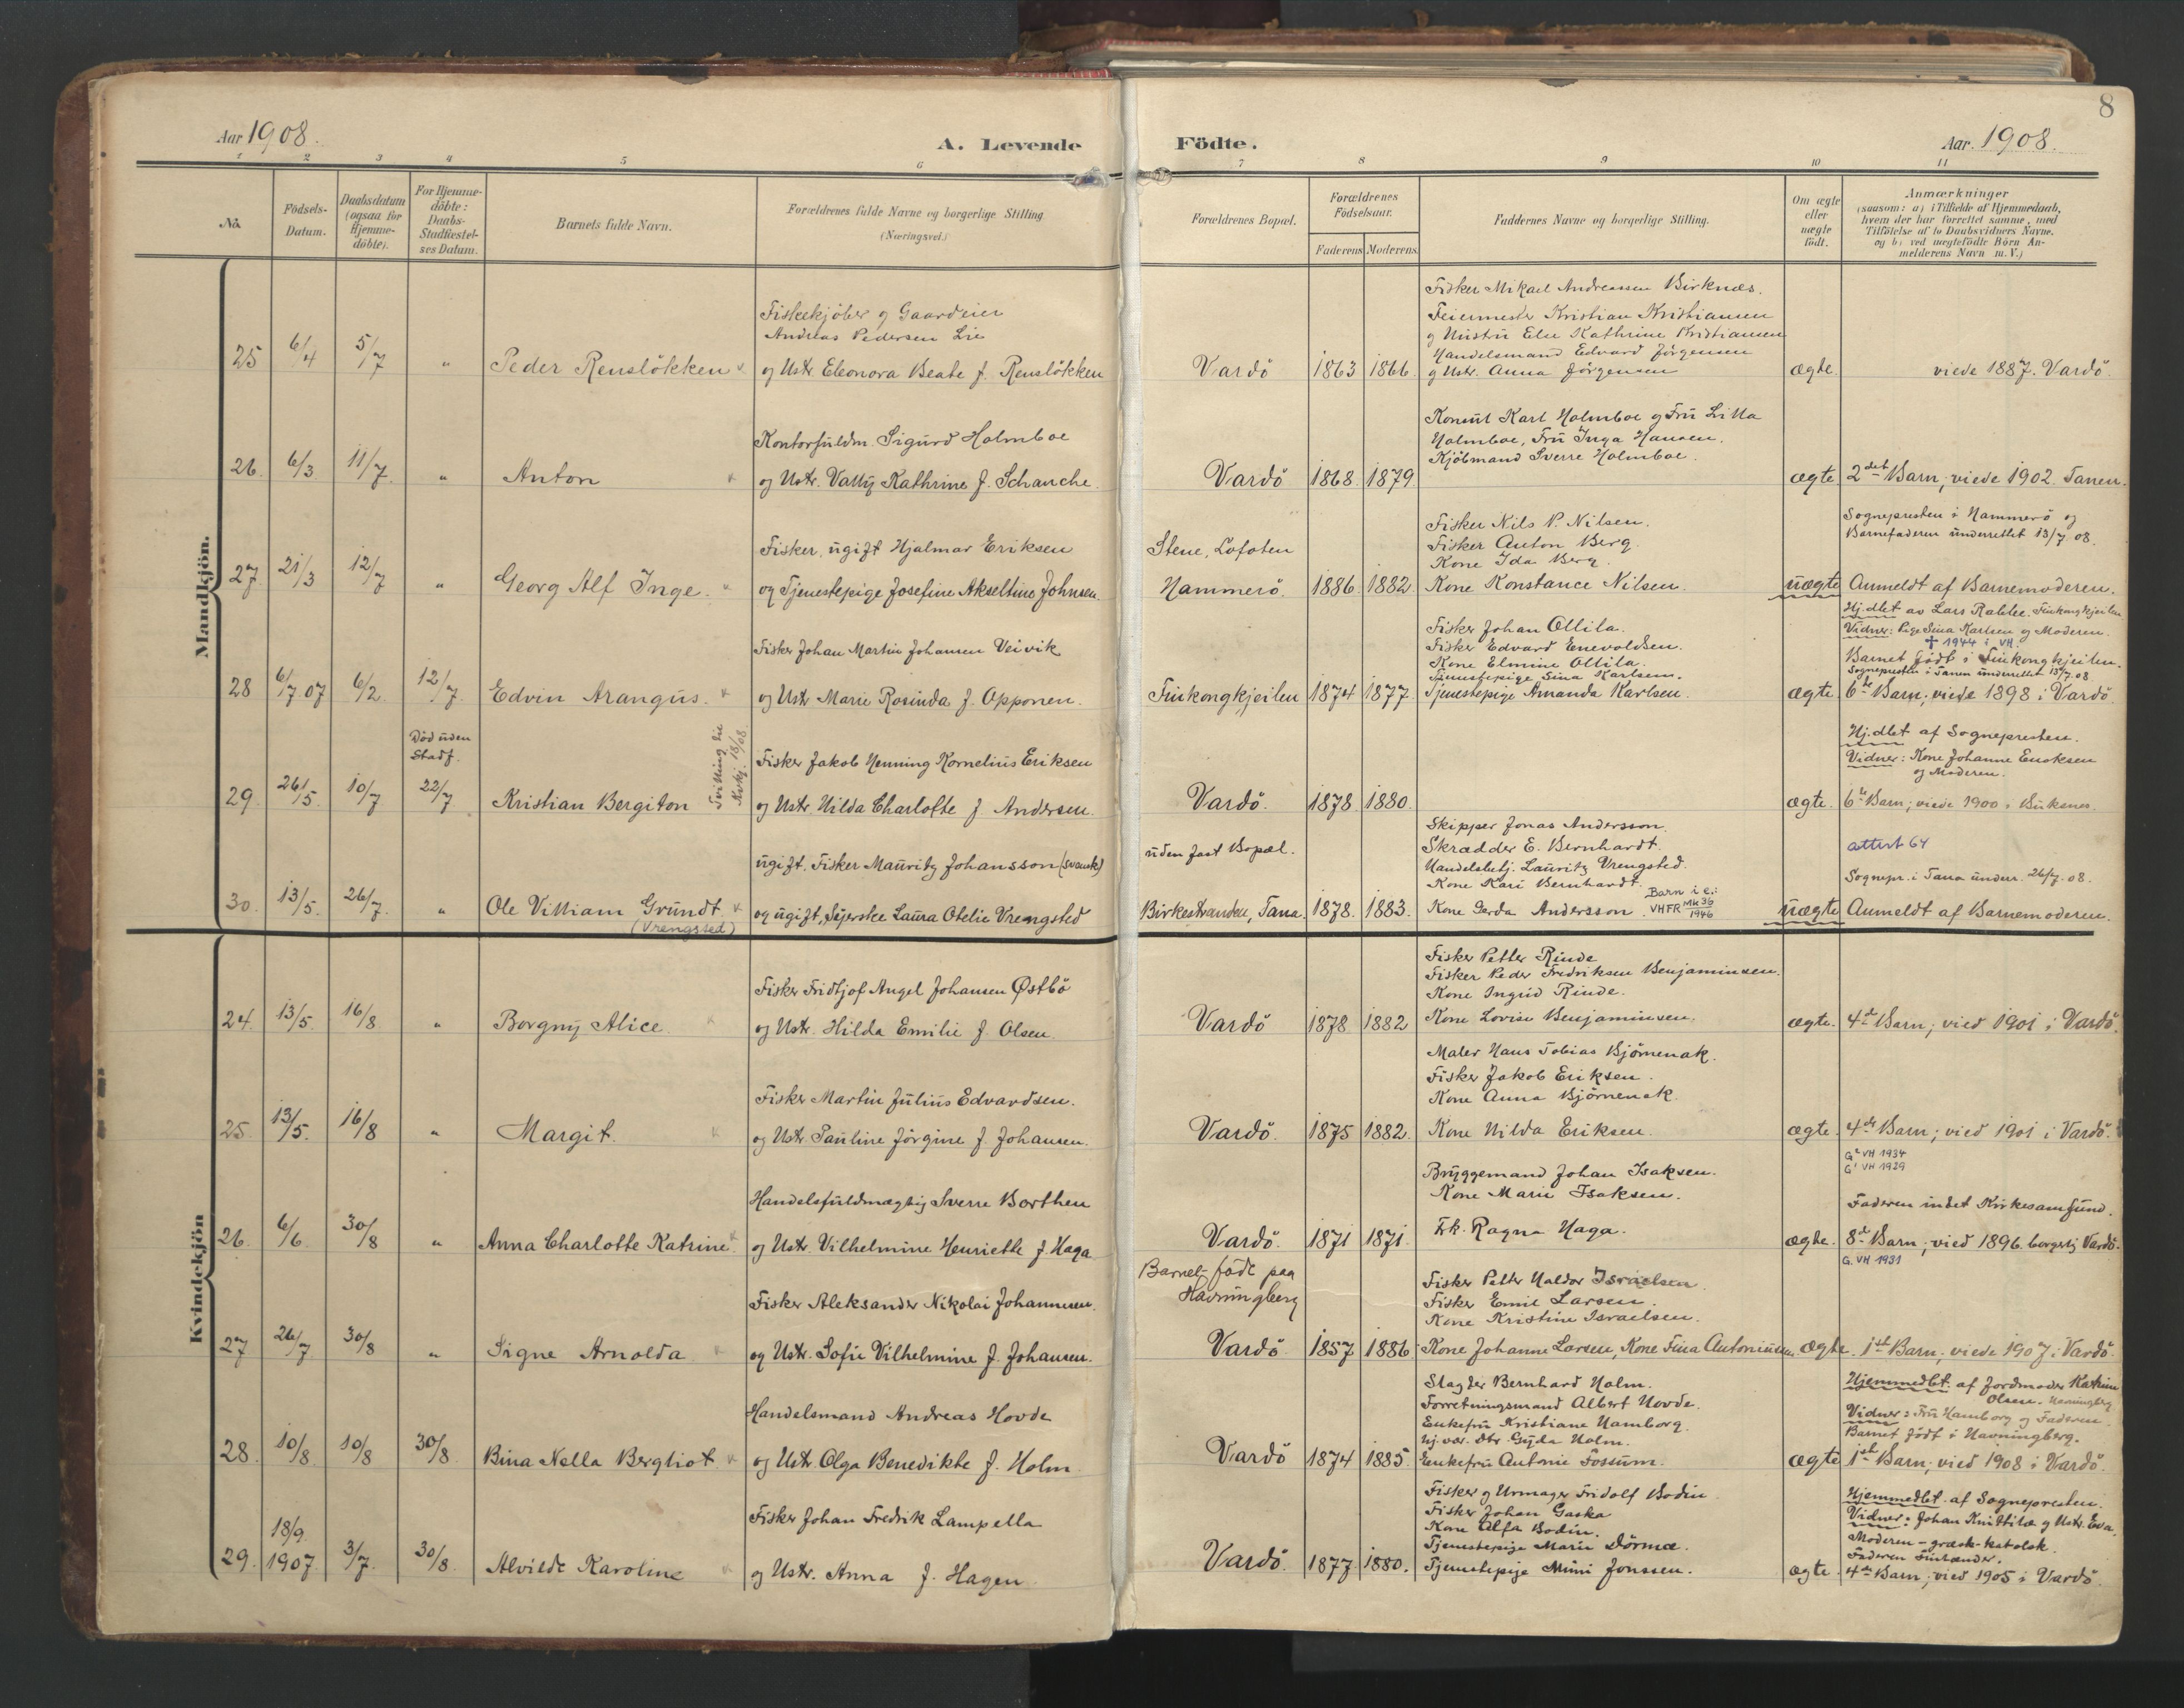 8
Aar 1908.
A. Levende
Födte.
Aar. 1908.
1 2 3 4 5 6 7 8 9 10 11
No.
Födsels-
Datum.
Daabsdatum
(ogsaa for
Hjemme-
döbte).
For Hjemme-
döbte:
Daabs-
Stadfæstel-
ses Datum.
Barnets fulde Navn.
Forældrenes fulde Navne og borgerlige Stilling
(Næringsvei.)
Forældrenes Bopæl.
Forældrenes
Födselsaar.
Faderens Moderens
Faddernes Navne og borgerlige Stilling.
Om ægte
eller
uægte
födt.
Anmærkninger
(saasom: a) i Tilfælde af Hjemmedaab,
hvem der har forrettet samme, med
Tilföielse af to Daabsvidners Navne.
og b) ved uægtefödte Börn An-
melderens Navn m. V.)
Mandkjön.
25 6/4 5/7 "
Peder Renslökken
Fiskekjöber og Gaardeier
Andreas Pedersen Lie
og Ustr. Eleonora Beate f. Renslökken
Vardö 1863 1866.
Fisker Mikael Andreassen Birknes.
Feiermester Kristian Kristiansen
og Hustru Else Kathrine Kristiansen
Handelsmand Edvard Jörgensen
og Ustr. Anna Jörgensen
ægte.
viede 1887. Vardö.
26. 6/3 11/7 "
Anton
Kontorfuldm. Sigurd Holmboe
og Ustr. Vally Kathrine f. Schanche.
Vardö 1868. 1879
Konsul Karl Holmboe og Fru Lilla
Holmboe, Fru Inga Hansen.
Kjöbmand Sverre Holmboe.
ægte.
2det Barn; viede 1902. Tanen.
27. 21/3 12/7 "
Georg Alf Inge.
Fisker, ugift Hjalmar Eriksen
og Tjenestepige Josefine Akseltine Johnsen.
Stene, Lofoten
Hammerö. 1886. 1882.
Fisker Nils P. Nilsen.
Fisker Anton Berg.
Kone Ida Berg.
Kone Konstance Nilsen.
uægte
Sognepresten i Hammerö og
Barnefaderen underrettet 13/7 08.
Anmeldt af Barnemoderen.
28 6/7 07 6/2. 12/7.
Edvin Arangus.
Fisker Johan Martin Johansen Veivik
og Ustr. Marie Rosinda f. Opponen.
Finkongkjeilen 1874 1877
Fisker Johan Ollila.
Fisker Edvard Enevoldsen.
Kone Elmine Ollila.
Tjenestepige Sina Karlsen.
Tjenestepige Amanda Karlsen.
ægte
Hj.dbt av Lars Rabbe. Finkongkjeilen
Vidner: Pige Sina Karlsen og Moderen.
✝ 1944 i VH.
Barnet födt i Finkongkjeilen.
Sognepresten i Tanen underrettet 13/7.08
6te Barn; viede 1898 i Vardö
29. 26/5. 10/7
Död uden
Stadf.
22/7
Kristian Bergiton
Fisker Jakob Henning Kornelius Eriksen
og Ustr. Hilda Charlotte f. Andersen.
Vardö. 1878 1880.
ægte.
Hj.dbt af Sognepresten.
Vidner: Kone Johanne Enoksen
og Moderen.
6te Barn; viede 1900 i Buksnes.
30. 13/5. 26/7. "
Ole Villiam Grundt
(Vrengsted)
ugift. Fisker Mauritz Johansson (svensk)
og ugift, Syerske Laura Otelie Vrengsted
uden fast Bopæl.
Birkestranden, Tana 1878. 1883.
Skipper Jonas Andersson.
Skrædder E. Bernhardt.
Handelsbetj. Lauritz Vrengsted.
Kone Kari Bernhardt.
Kone Gerda Andersson.
Barn i e.:
VHFR Mk 36
1946
uægte
attest 64
Sognepr. i Tana underr. 26/7. 08.
Anmeldt af Barnemoderen.
Kvindekjön
24. 13/5. 16/8 "
Borgny Alice.
Fisker Fridtjof Angel Johansen Østbö
og Ustr. Hilda Emilie f. Olsen.
Vardö 1878 1882
Fisker Petter Rinde
Fisker Peder Fredriksen Benjaminsen.
Kone Ingrid Rinde.
Kone Lovise Benjaminsen.
ægte.
4de Barn; vied 1901 i Vardö.
25. 13/5. 16/8 "
Margit.
Fisker Martin Julius Edvardsen.
og Ustr. Pauline Jörgine f. Johansen.
Vardö. 1875 1882.
Maler Hans Tobias Björnenak.
Fisker Jakob Eriksen.
Kone Anna Björnenak.
Kone Hilda Eriksen.
ægte.
4de Barn; vied 1901 i Vardö.
G² VH 1934
G¹ VH 1929
26. 6/6. 30/8 "
Anna Charlotte Katrine
Handelsfuldmægtig Sverre Borthen
og Ustr. Vilhelmine Henriette f. Haga
Vardö. 1871 1871.
Bryggemand Johan Isaksen.
Kone Marie Isaksen.
Frk. Ragna Haga.
ægte.
Faderen intet Kirkesamfund.
8de Barn; vied 1896 borgerlig Vardö.
G. VH 1931
27 26/7 30/8 "
Signe Arnolda
Fisker Aleksander Nikolai Johannesen.
og Ustr. Sofie Vilhelmine f. Johansen.
Barnet födt paa
Havningberg
Vardö 1857 1886.
Fisker Petter Haldor Israelsen.
Fisker Emil Larsen.
Kone Kristine Israelsen.
Kone Johanne Larsen, Kone Fina Antoniusen.
ægte.
1ste Barn; viede 1907 i Vardö.
28. 10/8. 10/8 30/8.
Bina Nella Bergliot
Handelsmand Andreas Hovde
og Ustr. Olga Benedikte f. Holm
Vardö 1874 1885.
Slagter Bernhard Holm.
Forretningsmand Albert Hovde.
Enkefru Kristiane Hamborg.
Hj.vær. Dtr. Gyda Holm.
Enkefru Antonie Fossum.
ægte
Hjemmedbt. af Jordmoder Katrine
Olsen. Havningberg
Vidner: Fru Hamborg og Faderen.
Barnet födt i Havningberg.
1ste Barn; vied 1908 i Vardö.
29. 18/9. 1907 3/7. 30/8.
Alvilde Karoline
Fisker Johan Fredrik Lampella
og Ustr. Anna f. Hagen.
Vardö. 1877 1880.
Fisker og Urmager Fridolf Bodin.
Fisker Johan Gaska
Kone Alfa Bodin.
Tjenestepige Marie Dörmæ.
Tjenestepige Mimi Jonssen.
ægte.
Hjemmedbt. af Sognepresten.
Vidner: Johan Knittilæ og Ustr. Eva.
Moderen - græsk-katolsk.
Faderen Finlænder.
4de Barn; vied 1905 i Vardö.